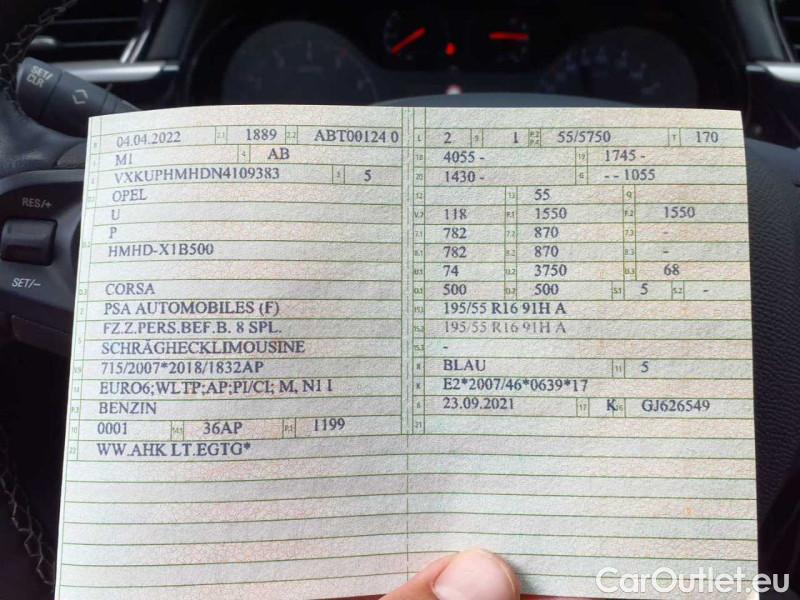 SET/
CLR
RES/+
SET/–
B 04.04.2022 2.1 1889 2.2 ABT00124 0
J M1 4 AB
E VXKUPHMHDN4109383 3 5
D.1 OPEL
U
P
D.2 HMHD-X1B500
D.3 CORSA
2 PSA AUTOMOBILES (F)
FZ.Z.PERS.BEF.B. 8 SPL.
5 SCHRÄGHECKLIMOUSINE
V.9 715/2007*2018/1832AP
14 EURO6;WLTP;AP;PI/CI; M, N1 I
P.3 BENZIN
10 0001 14.1 36AP P.1 1199
22 WW.AHK LT.EGTG*
L 2 9 1 P.2 P.4 55/5750 T 170
18 4055 - 19 1745 -
20 1430 - G - - 1055
12 13 55 Q
V.7 118 F.1 1550 F.2 1550
7.1 782 7.2 870 7.3 -
8.1 782 8.2 870 8.3 -
U.1 74 U.2 3750 U.3 68
O.1 500 O.2 500 S.1 5 S.2 -
15.1 195/55 R16 91H A
15.2 195/55 R16 91H A
15.3 -
R BLAU 11 5
K E2*2007/46*0639*17
6 23.09.2021 17 K 16 GJ626549
21
CarOutlet.eu